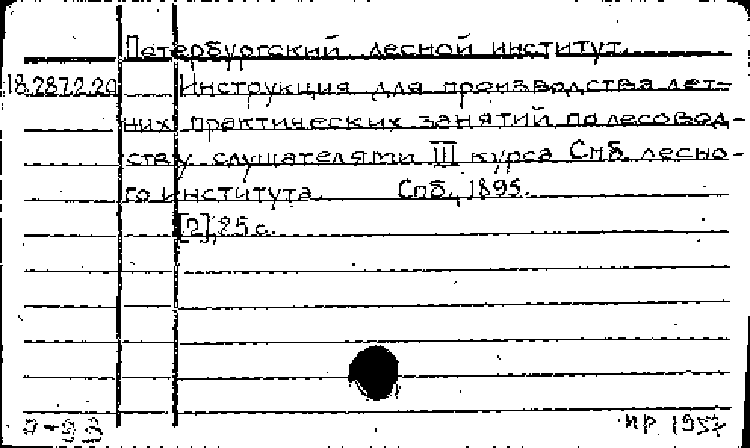 Петербургский лесной институт.
18.287.2.20 Инструкция для производства лет-
них практических занятий по лесовод-
ству слушателями III курса Спб. лесно-
го института. Спб., 1895.
[2], 25 с.
пр 1957